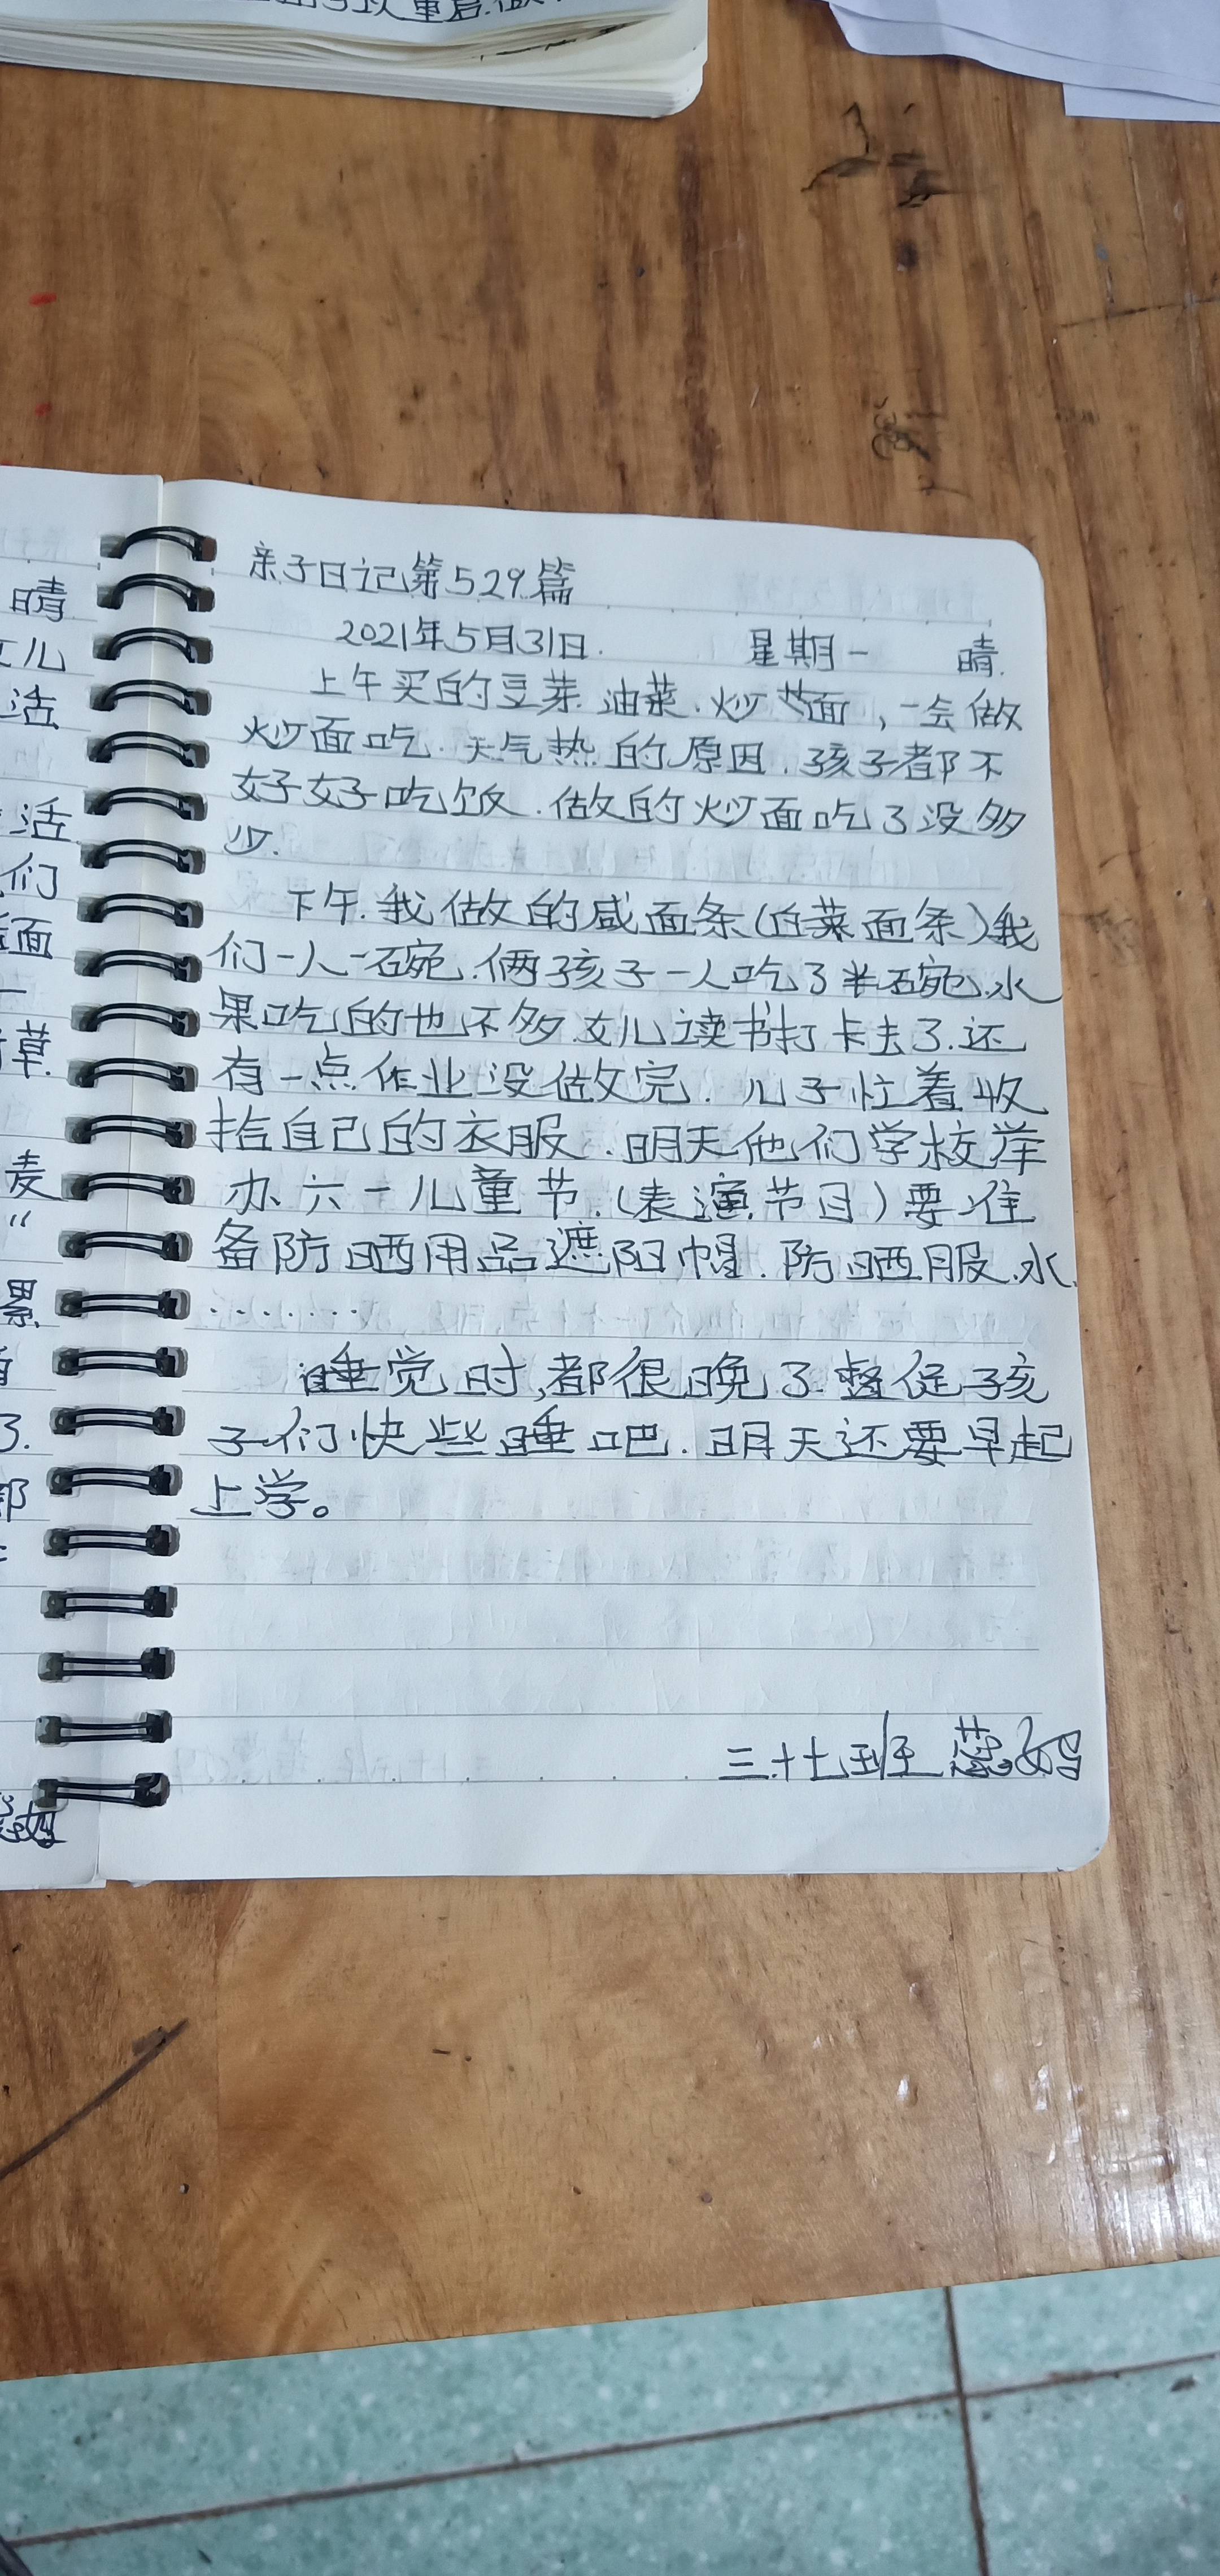 亲子日记第529篇
2021年5月31日. 星期一 晴.
上午买的豆菜.油菜.炒面,一会做
炒面吃.天气热的原因.孩子都不
好好吃饭.做的炒面吃了没多
少.
下午.我做的咸面条(白菜面条)我
们一人一碗.俩孩子一人吃了半碗.水
果吃的也不多.女儿读书打卡去了.还
有一点作业没做完.儿子忙着收
拾自己的衣服.明天他们学校举
办六一儿童节.(表演节目)要准
备防晒用品遮阳帽.防晒服.水.
........
睡觉时,都很晚了.督促孩
子们快些睡吧.明天还要早起
上学。
三.十七班
晴
女儿
活
活
们
面
一
草.
麦
“
累
了.
部